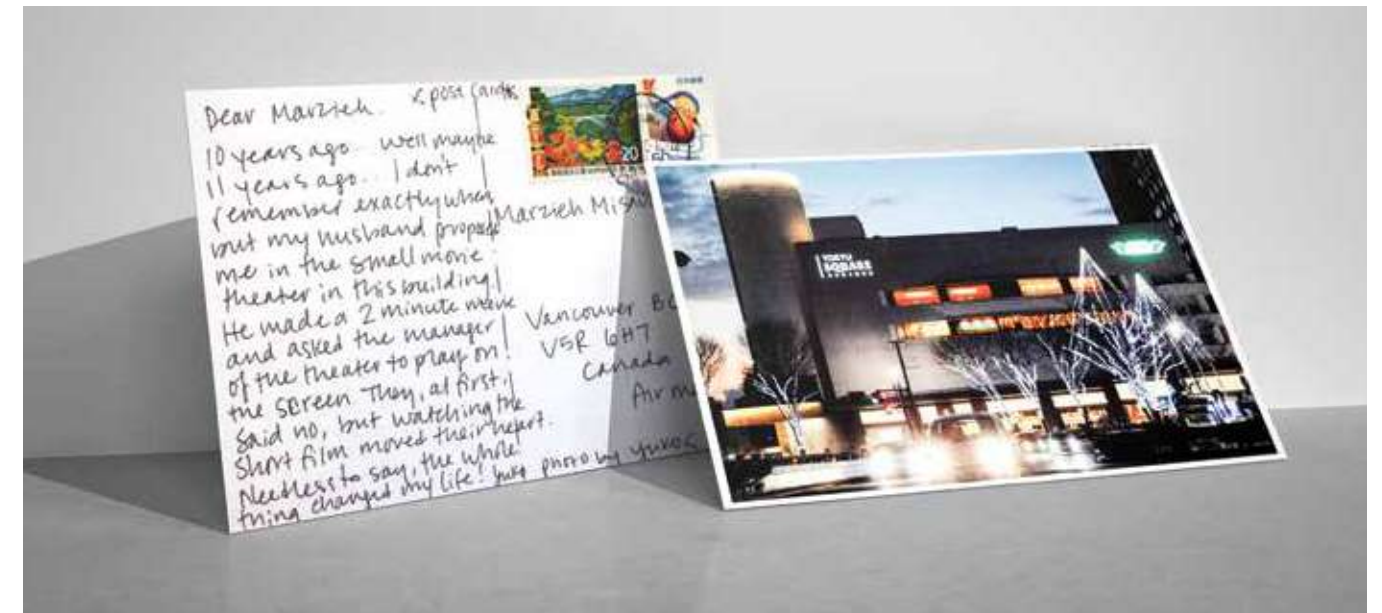 Dear Marzieh.
post cards
10 years ago.. well maybe
11 years ago... I don't
remember exactly when
but my husband propose
me in the small movie
theater in this building!
He made a 2 minute movie
and asked the manager
of the theater to play on
the screen They, at first,
said no, but watching the
short film moved their heart.
Needless to say, the whole
thing changed my life!
photo by Yuko
20
50
Marzieh
Vancouver BC
V5R 6H7
Canada
Air
TOKYU
SQUARE